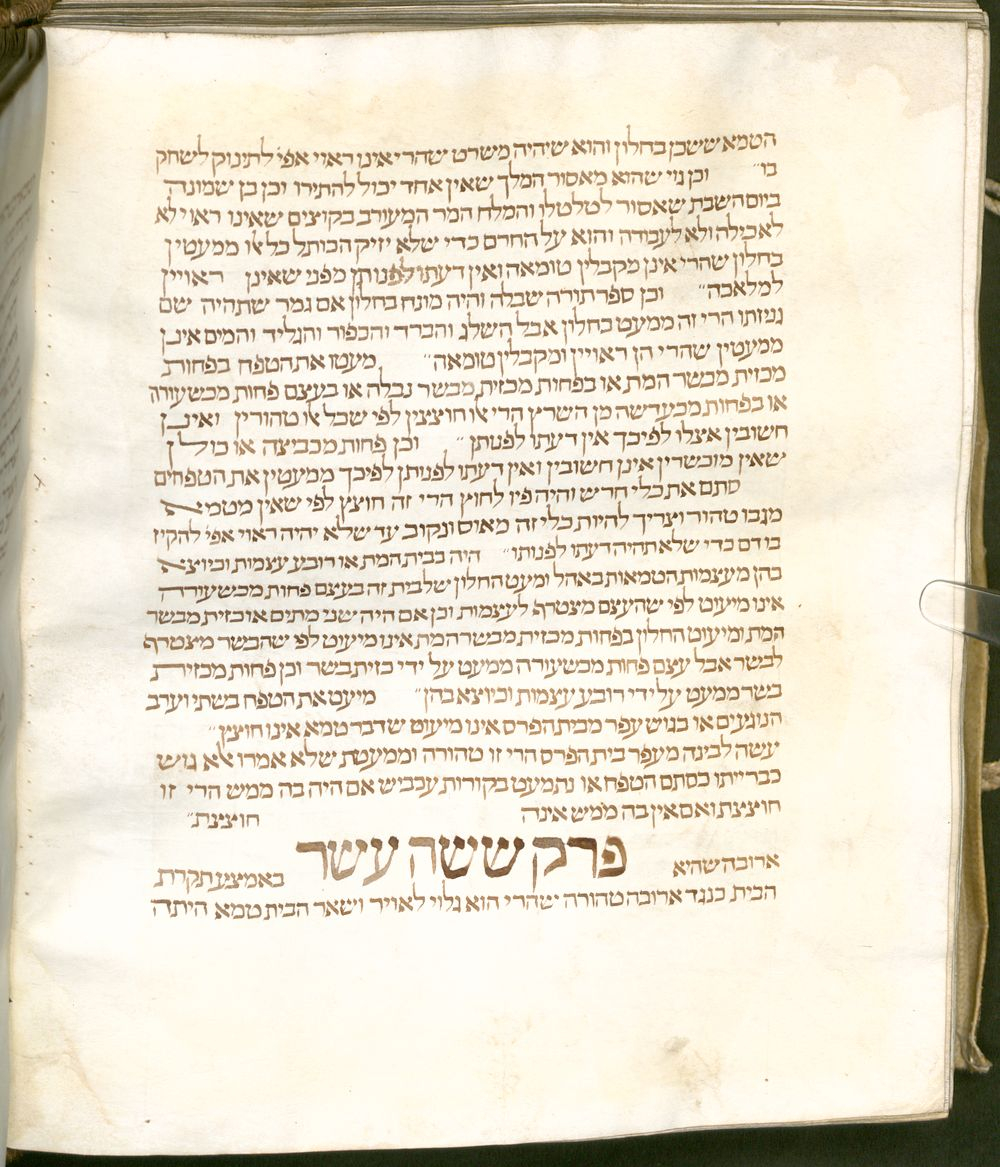 הטמא ששכן בחלון והוא שיהיה משרט שהרי אינו ראוי אפי׳ לתינוק לשחק
בו״ וכן גוי שהוא מאסור המלך שאין אחד יכול להתירו וכן בן שמונה
ביום השבת שאסור לטלטלו והמלח המר המעורב בקוצים שאינו ראוי לא
לאכילה ולא לעבודה והוא על החרם כדי שלא יזיק הכותל כל אלו ממעטין
בחלון שהרי אינן מקבלין טומאה ואין דעתו לפנותן מפני שאינן ראויין
למלאכה״ וכן ספר תורה שבלה והיה מונח בחלון אם גמר שתהיה שם
גניזתו הרי זה ממעט בחלון אבל השלג והברד והכפור והגליד והמים אינן
ממעטין שהרי הן ראויין ומקבלין טומאה״ מעטו את הטפח בפחות
מכזית מבשר המת או בפחות מכזית מבשר נבלה או בעצם פחות מכשעורה
או בפחות מכעדשה מן השרץ הרי אלו חוצצין לפי שכל אלו טהורין ואינן
חשובין אצלו לפיכך אין דעתו לפנותן״ וכן פחות מכביצה אוכולין
שאין מוכשרין אינן חשובין ואין דעתו לפנותן לפיכך ממעטין את הטפחים
סתם את כלי חרש והיה פיו לחוץ הרי זה חוצץ לפי שאין מטמא
מגבו טהור וצריך להיות כלי זה מאוס ונקוב עד שלא יהיה ראוי אפי׳ להקיז
בו דם כדי שלא תהיה דעתו לפנותו״ היה בבית המת או רובע עצמות וכיוצא
בהן מעצמות הטמאות באהל ומעט החלון שלבית זה בעצם פחות מכשעורה
אינו מיעוט לפי שהעצם מצטרף לעצמות וכן אם היה שני מתים או כזית מבשר
המת ומיעוט החלון בפחות מכזית מבשר המת אינו מיעוט לפי שהבשר מצטרף
לבשר אבל עצם פחות מכשעורה ממעט על ידי כזית בשר וכן פחות מכזית
בשר ממעט על ידי רובע עצמות וכיוצא בהן״ מיעט את הטפח בשתי וערב
הנוגעים או בגוש עפר מבית הפרס אינו מיעוט שדבר טמא אינו חוצץ״
עשה לבינה מעפר בית הפרס הרי זו טהורה וממעטת שלא אמרו אלא גוש
כברייתו כסתם הטפח או נתמעט בקורות עכביש אם היה בה ממש הרי זו
חוצצת ואם אין בה ממש אינה חוצצת״
פרק ששה עשר
ארובה שהיא באמצע תקרת
הבית כנגד ארובה טהורה שהרי הוא גלוי לאויר ושאר הבית טמא היתה